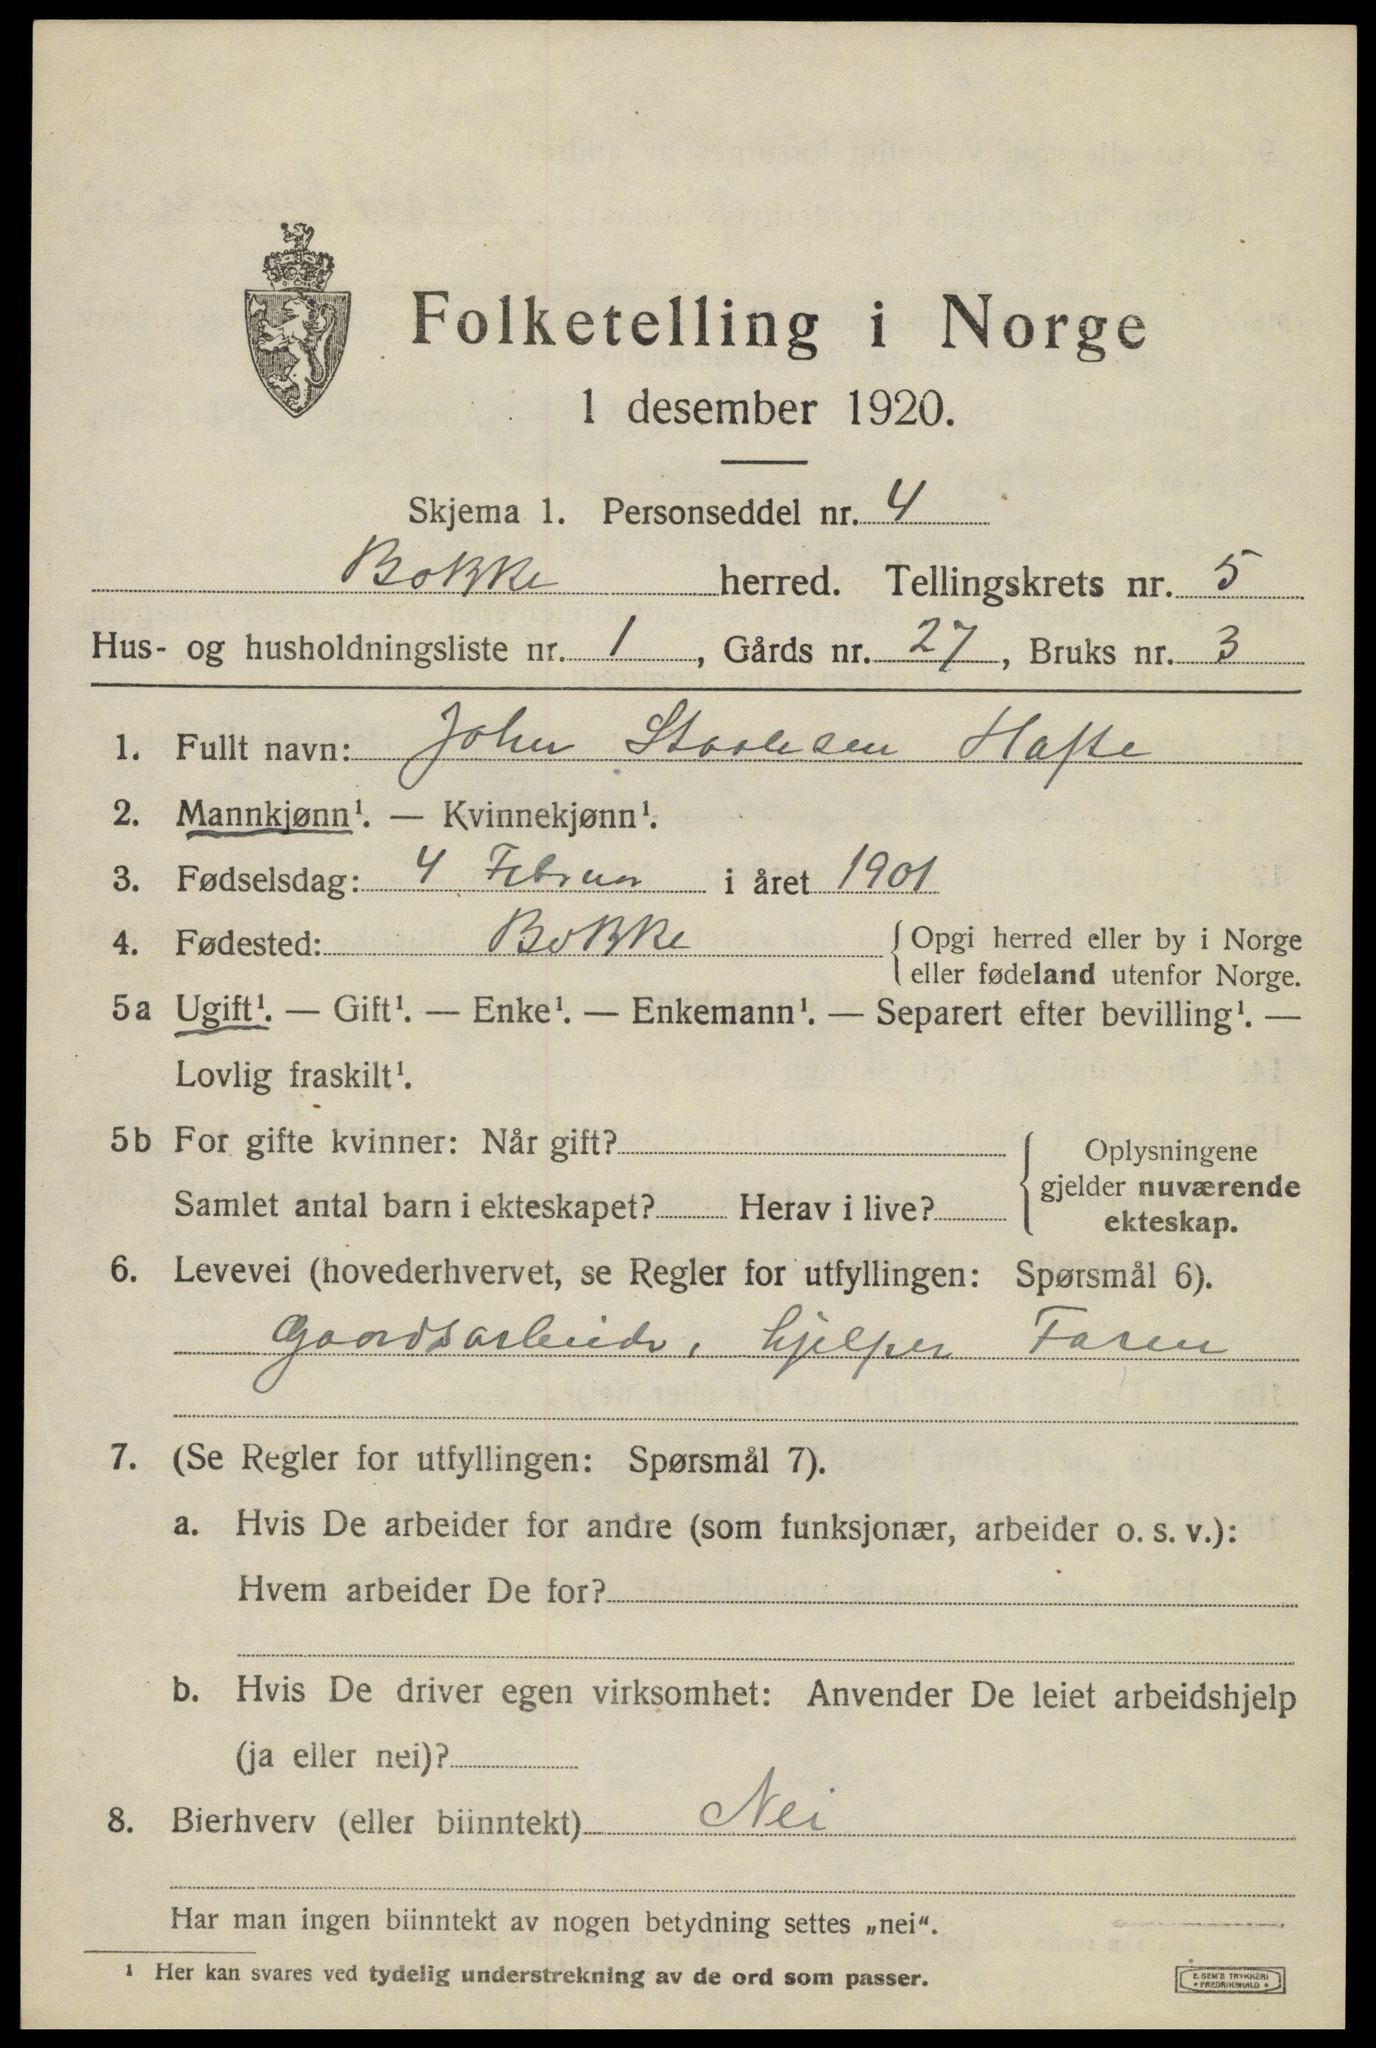 Folketelling i Norge
1 desember 1920.
Skjema 1. Personseddel nr. 4
Bokke herred. Tellingskrets nr. 5
Hus- og husholdningsliste nr. 1, Gårds nr. 27, Bruks nr. 3
1. Fullt navn: John Staalesen
2. Mannkjønn¹. — Kvinnekjønn¹.
3. Fødselsdag: 4 Februar i året 1901
4. Fødested: Bokke {Opgi herred eller by i Norge
eller fødeland utenfor Norge.
5a Ugift¹. — Gift¹. — Enke¹. — Enkemann¹. — Separert efter bevilling¹. —
Lovlig fraskilt¹.
5b For gifte kvinner: Når gift?
Samlet antal barn i ekteskapet? Herav i live?
{Oplysningene
gjelder nuværende
ekteskap.
6. Levevei (hovederhvervet, se Regler for utfyllingen: Spørsmål 6).
Gaardsarbeide, hjelper Faren
7. (Se Regler for utfyllingen: Spørsmål 7).
a. Hvis De arbeider for andre (som funksjonær, arbeider o. s. v.):
Hvem arbeider De for?
b. Hvis De driver egen virksomhet: Anvender De leiet arbeidshjelp
(ja eller nei)?
8. Bierhverv (eller biinntekt) Nei
Har man ingen biinntekt av nogen betydning settes „nei“.
¹ Her kan svares ved tydelig understrekning av de ord som passer.
E. SEM'S TRYKKERI
* FREDRIKSHALD *